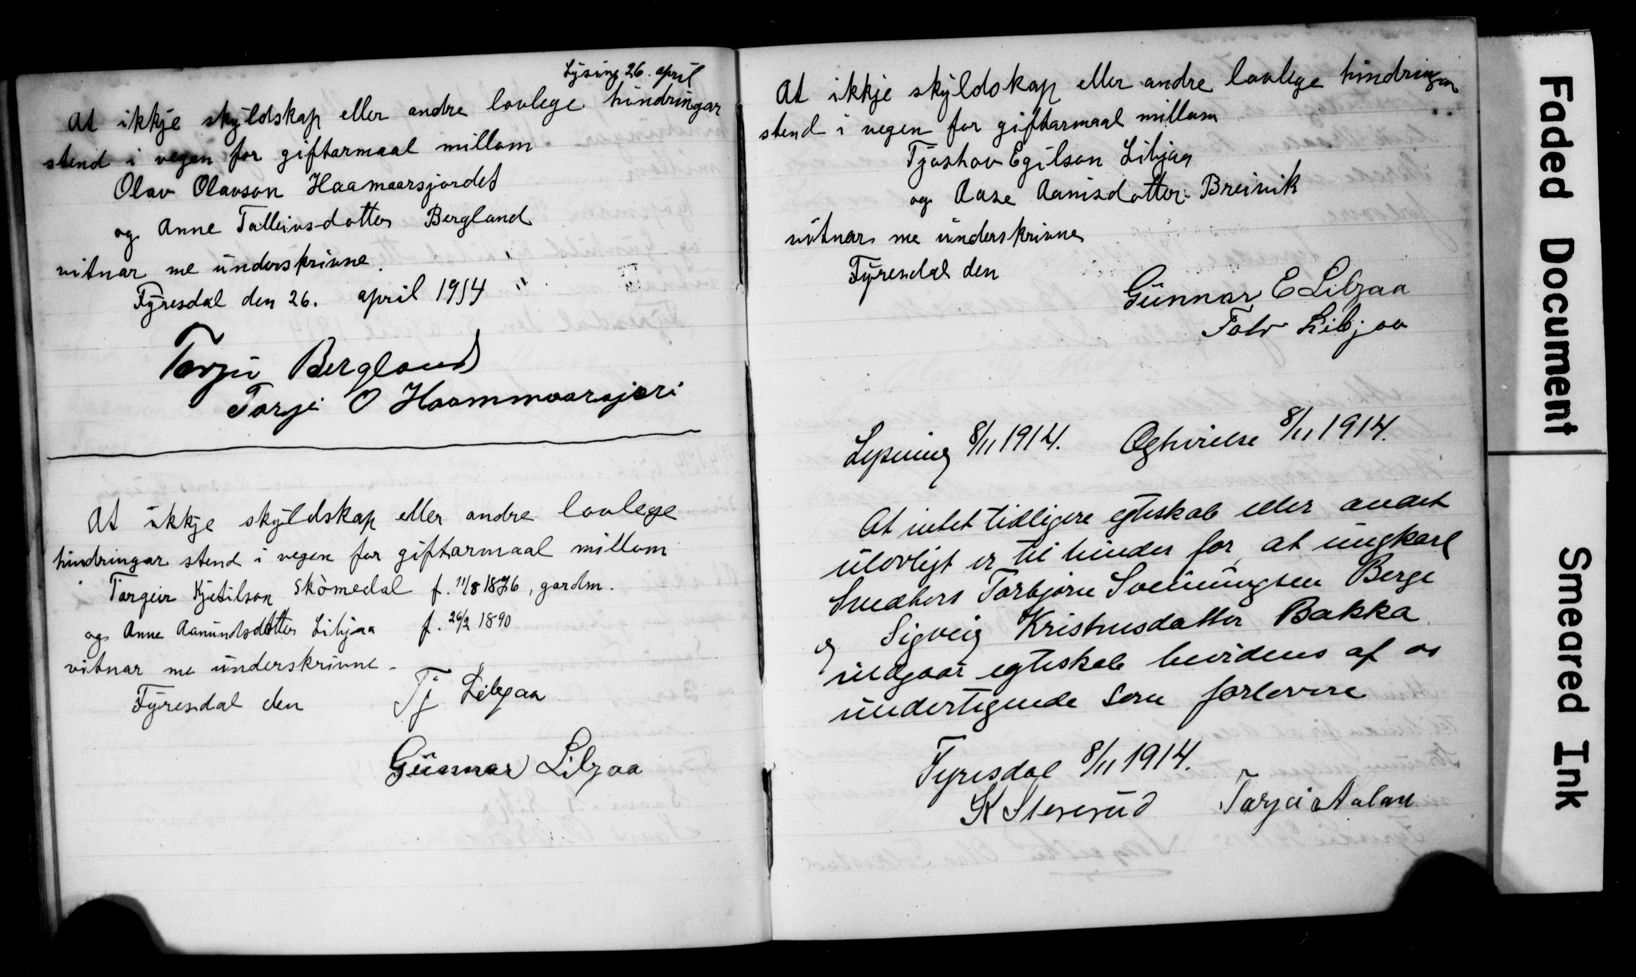 Lysing 26. april
At ikkje skyldskap eller andre lovlege hindringar
stend i vegen for giftarmaal millom
Olav Olavson Haamaarsjordet
og Anne Talleivsdotter Bergland
vitnar me underskrivne.
Fyresdal den 26. april 1914
Torjei Bergland
Torjei O Haammaarsjori
At ikkje skyldskap eller andre lovlege
hindringar stend i vegen for giftarmaal millom
Torgeir Kjetilson Skòmedal f. 11/8 1876, gardm.
og Anne Aanundsdotter Libjaa f. 26/2 1890
vitnar me underskrivne
Fyresdal den
Tj Libjaa
Gunnar Libjaa
At ikkje skyldskap eller andre lovlege hindringar
stend i vegen for giftarmaal millom
Tjostov Egilson Libjaa
og Aase Aanisdotter Breivik
vitnar me underskrivne
Fyresdal den
Gunnar E Libjaa
Tolv Libjaa
Lysning 8/11 1914. Egtvielse 8/11 1914.
At intet tidligere egteskab eller andet
ulovligt er til hinder for, at ungkarl
Snedkers Torbjørn Sveinungsen Berge
og Sigveig Kristensdatter Bakka
indgaar egteskab bevidnes af os
undertegnede som forlovere
Fyresdal 8/11 1914.
K Stensrud Torjei Aaland
Faded Document
Smeared Ink